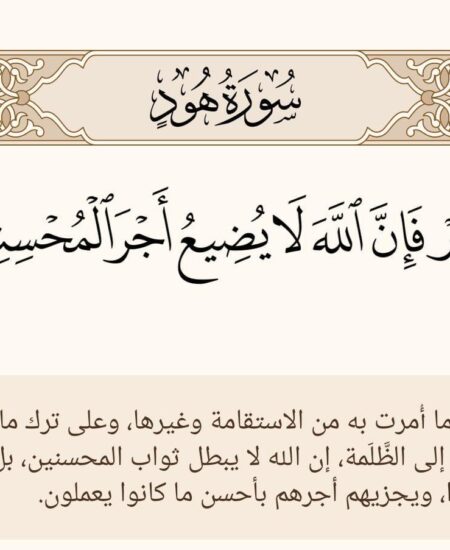 سُورَةُ هُودٍ
فَإِنَّ ٱللَّهَ لَا يُضِيعُ أَجۡرَ ٱلۡمُحۡسِنِ
ما أمرت به من الاستقامة وغيرها، وعلى ترك ما
إلى الظَّلَمة، إن الله لا يبطل ثواب المحسنين، بل
، ويجزيهم أجرهم بأحسن ما كانوا يعملون.